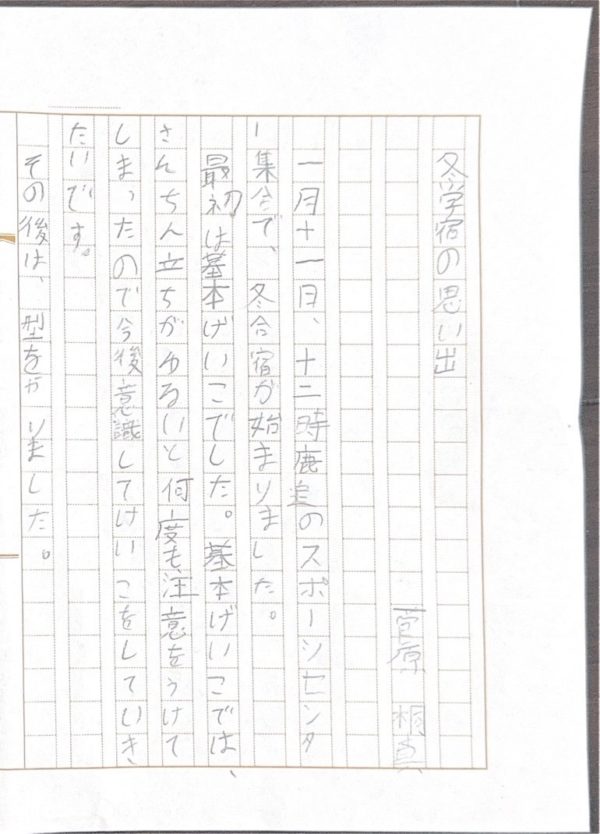 冬学宿の思い出
菅原　桐真
一月十一日、十二時鹿追のスポーツセンタ
ー集合で、冬合宿が始まりました。
最初は基本げいこでした。基本げいこでは、
さんちん立ちがゆるいと何度も注意をうけて
しまったので今後意識してけいこをしていき
たいです。
その後は、型をやりました。